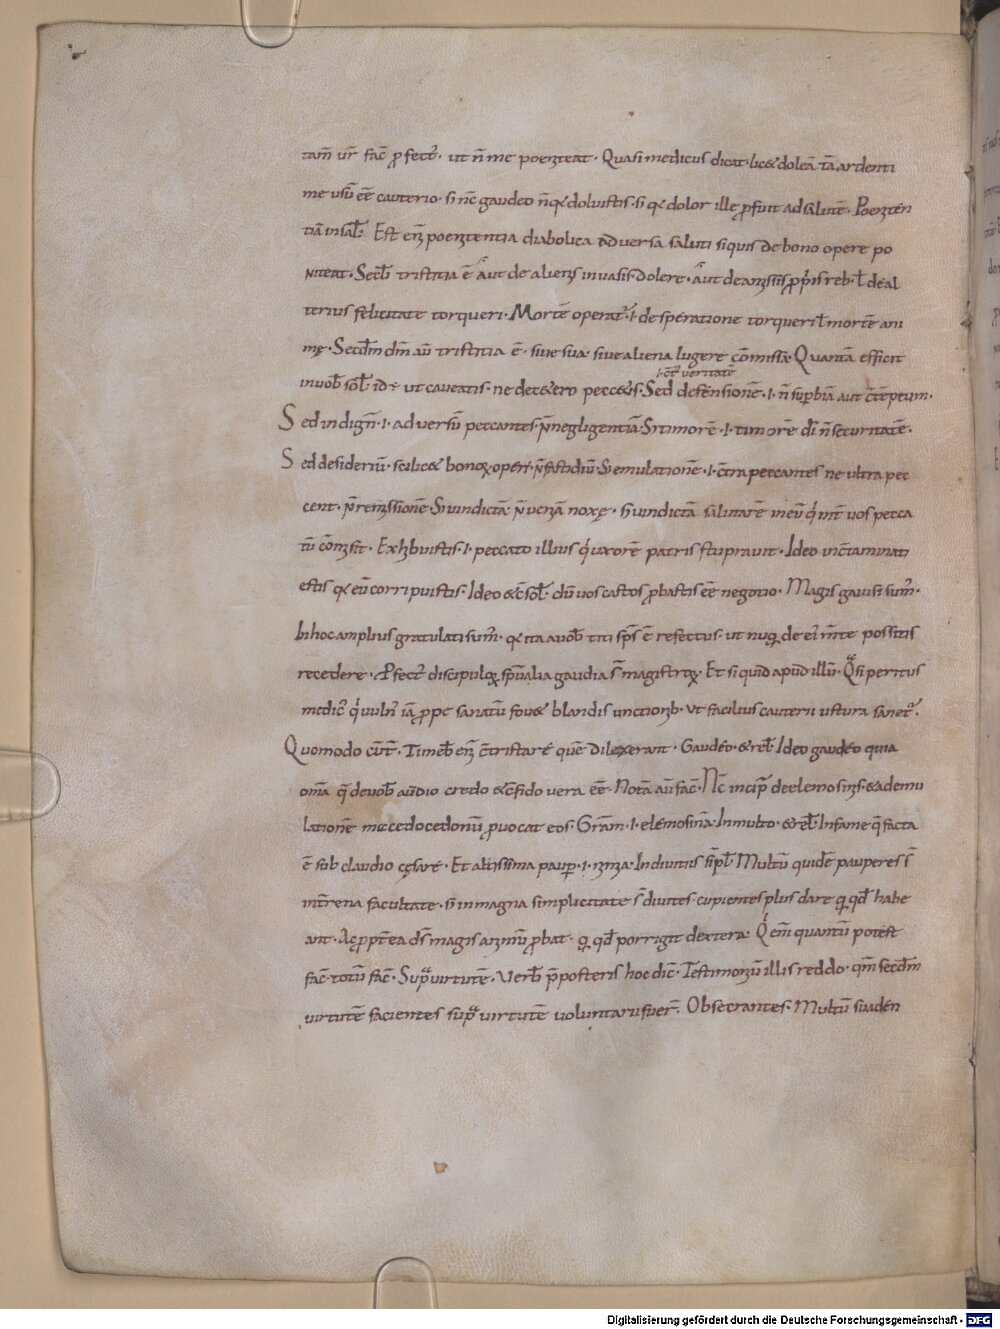 tam̄ ur̄ fac̄ ꝓfect᷒· ut n̄ me poeniteat· Quasi medicus dicat· lic& doleā tā ardenti
me usū eē cauterio· s; nc̄ gaudeo n̄ qđ doluistis· s; qđ dolor ille ꝓfuit ad salutē· Poeniten
tiā in sal̄· Est eni poenitentia diabolica aduersa saluti siquis de bono opere po
niteat· Secl̄i tristitia ē· Aut de alienis inuasis dolere· Aut de amissis ꝓpriis reb· l̄ de al
terius felicitate torqueri· Mortē operat᷒· i· desperatione torqueri l̄ mortē ani
mę· Secd̄m dm̄ au tristitia ē· siue sua siue aliena lugere cōmissa· Quantā efficit
·i· ctͣ ueritatē
in uob̄ sol̄· id ē· ut caueatis· ne de c&ero pecc&is· Sed defensionē· i· n̄ suꝑbiā aut c̄tēptum·
Sed indign̄· i· aduersū peccantes· n̄ negligentiā· S; timorē· i· timorē di n̄ securitatē·
Sed desideriū· scilic& bonoꝝ operū· n̄ fastidiū· S; emulationē· i· c̄tra peccantes ne ultra pec
cent· n̄ remissionē· S; uindictā· n̄ ueniā noxę· s; uindictā salutarē in eū qi int̄ uos pecca
tū cōmisit· Exhibuistis· i· peccato illius qi uxorē patris stuprauit· Ideo inc̄taminati
estis qđ eū corripuistis· Ideo &c̄sol̄· dū uos castos ꝓbastis eē negotio· Magis gauisi sum᷒·
In hoc amplius gratulati sum᷒· qđ ita a uob̄ titi sps̄ ē refectus· ut nuq̄ de ei᷒ m̄te possitis
recedere· Pfect᷒ discipuloꝝ sp̄ualia gaudia s̄ magistroꝝ· Et si quid apud illū· Qͣsi peritus
medic᷒ qi uuln᷒ iā ꝓpe sanatū fou& blandis unctionib· ut facilius cauterii ustura sanet᷒·
Quomodo cū t̄· Timeb̄ eni c̄tristare quē dilexerant· Gaudeo· & rel̄ Ideo gaudeo quia
omīa q̄ de uob̄ audio credo &c̄fido uera eē· Notā au fac̄· Nc̄ incip̄ de elemosinis· & ad emu
lationē macedo cedoniū ꝓuocat eos· Grām· i· elemosinā· In multo· & rel̄ In fame q̄ facta
ē sub claudio cęsare· Et altissima pauꝑ· i· nimia· In diuitiis sīpl̄· Multū quidē pauperes s̄
int̄rena facultate· s; in magna simplicitate s̄ diuites· cupientes plus dare qͣ qd̄ habe
ant· Ac ꝓpt̄ea ds̄ magis animū ꝓbat· qͣ qd̄ porrigit dextera· Qi eni quantū potest
fac̄· totū fac̄· Supͣ uirtutē· Uerb̄ p̄posteris hoc dic̄· Testimoniū illis reddo· qm̄ secd̄m
uirtutē facientes supͣ uirtutē uoluntarii fuer̄· Obsecrantes· Multū suaden
Digitalisierung gefördert durch die Deutsche Forschungsgemeinschaft - DFG